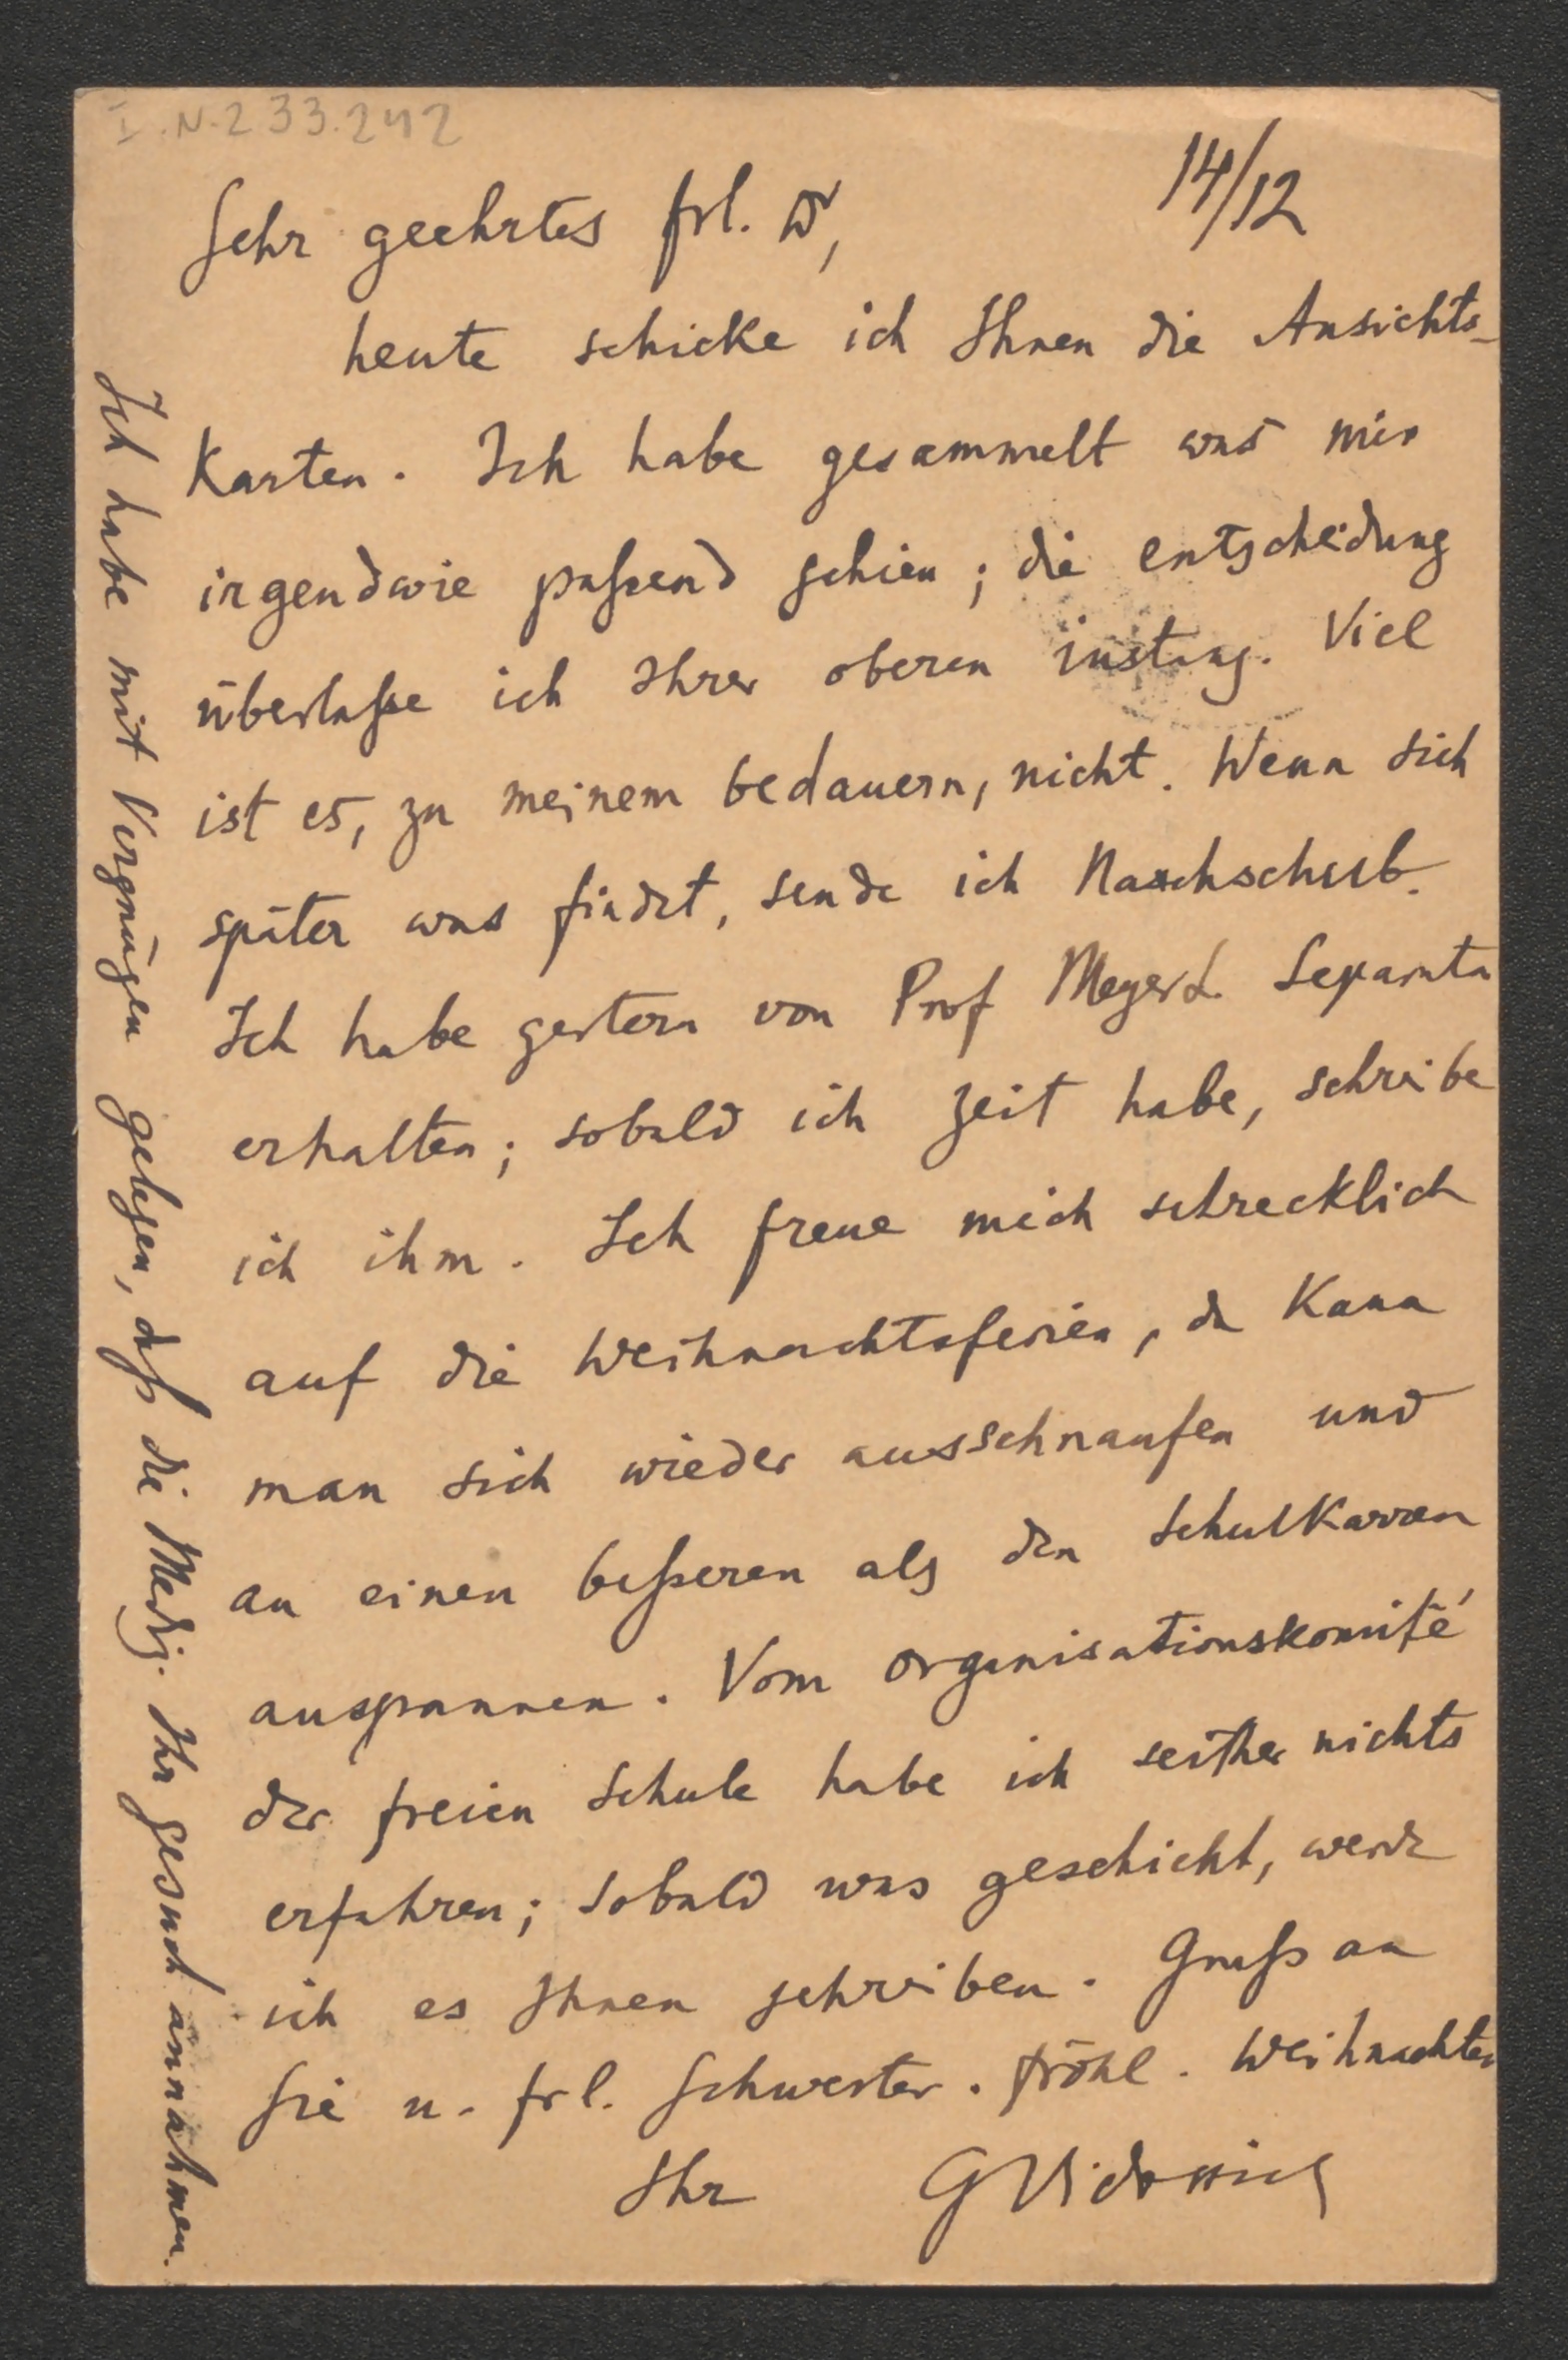 I.N. 233.242
14/12
Sehr geehrtes Frl. Dr,
heute schicke ich Ihnen die Ansichts-
Karten. Ich habe gesammelt was mir
irgendwie passend schien; die entscheidung
überlasse ich Ihrer oberen instanz. Viel
ist es, zu meinem bedauern, nicht. Wenn sich
später was findet, sende ich Nachschub.
Ich habe gestern von Prof MeyerL. Separata
erhalten; sobald ich zeit habe, schreibe
ich ihm. Ich freue mich schrecklich
auf die Weihnachtsferien, da Kann
man sich wieder ausschnaufen und
an einen besseren als den SchulKarren
anspannen. Vom organisationskomité
der freien Schule habe ich seither nichts
erfahren; sobald was geschieht, werde
ich es Ihnen schreiben. Gruss an
Sie u. Frl. Schwester. fröhl. Weihnachten
Ihr GVidossich
Ich habe mit Vergnügen gelesen, dass die Mediz. Ihr gesuch annahmen.